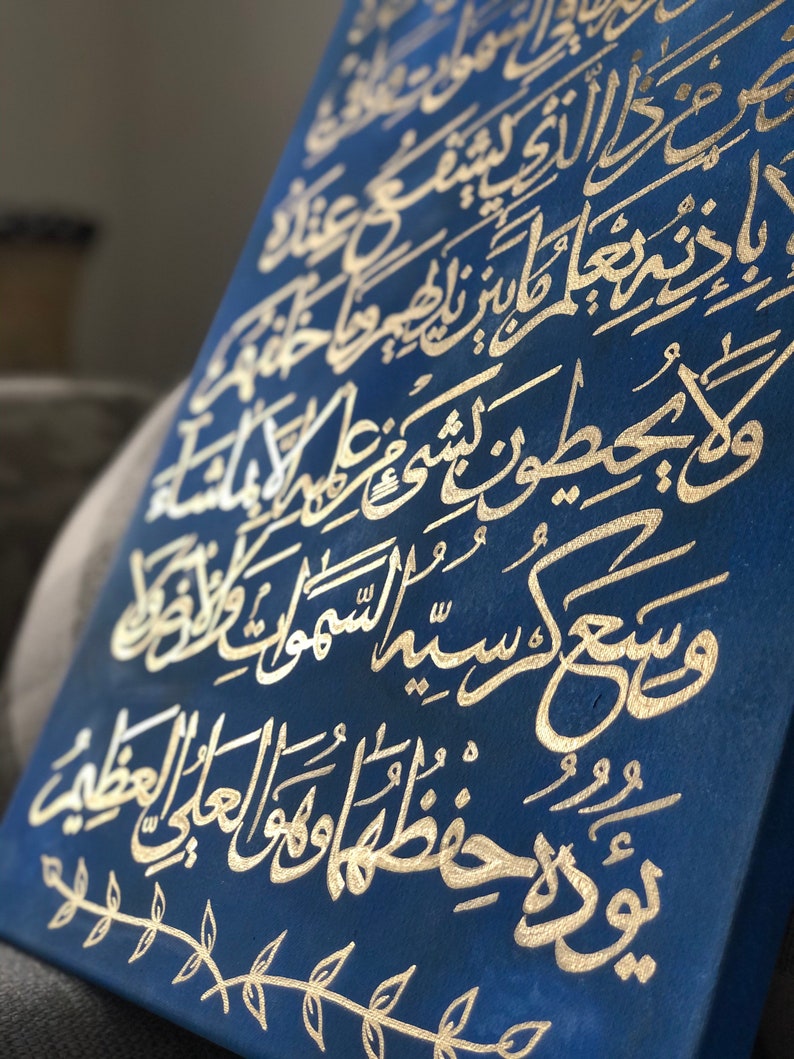 السموات وما في
ذا الذي يشفع عنده
بإذنه يعلم ما بين يديهم وما خلفهم
ولا يحيطون بشئ من علمه إلا بما شاء
وسع كرسيه السموات والأرض ولا
يؤده حفظهما وهو العلي العظيم